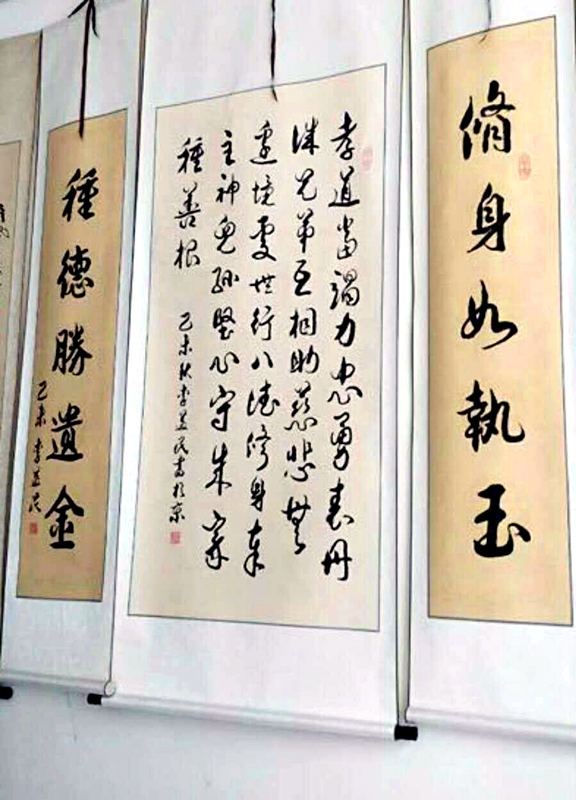 脩身如執玉
孝道當竭力忠勇表丹
誠兄弟互相助慈悲無
邊境處世行八德修身奉
主神兒孫堅心守成家
種善根 己未秋李書於京
種德勝遺金
己未 李